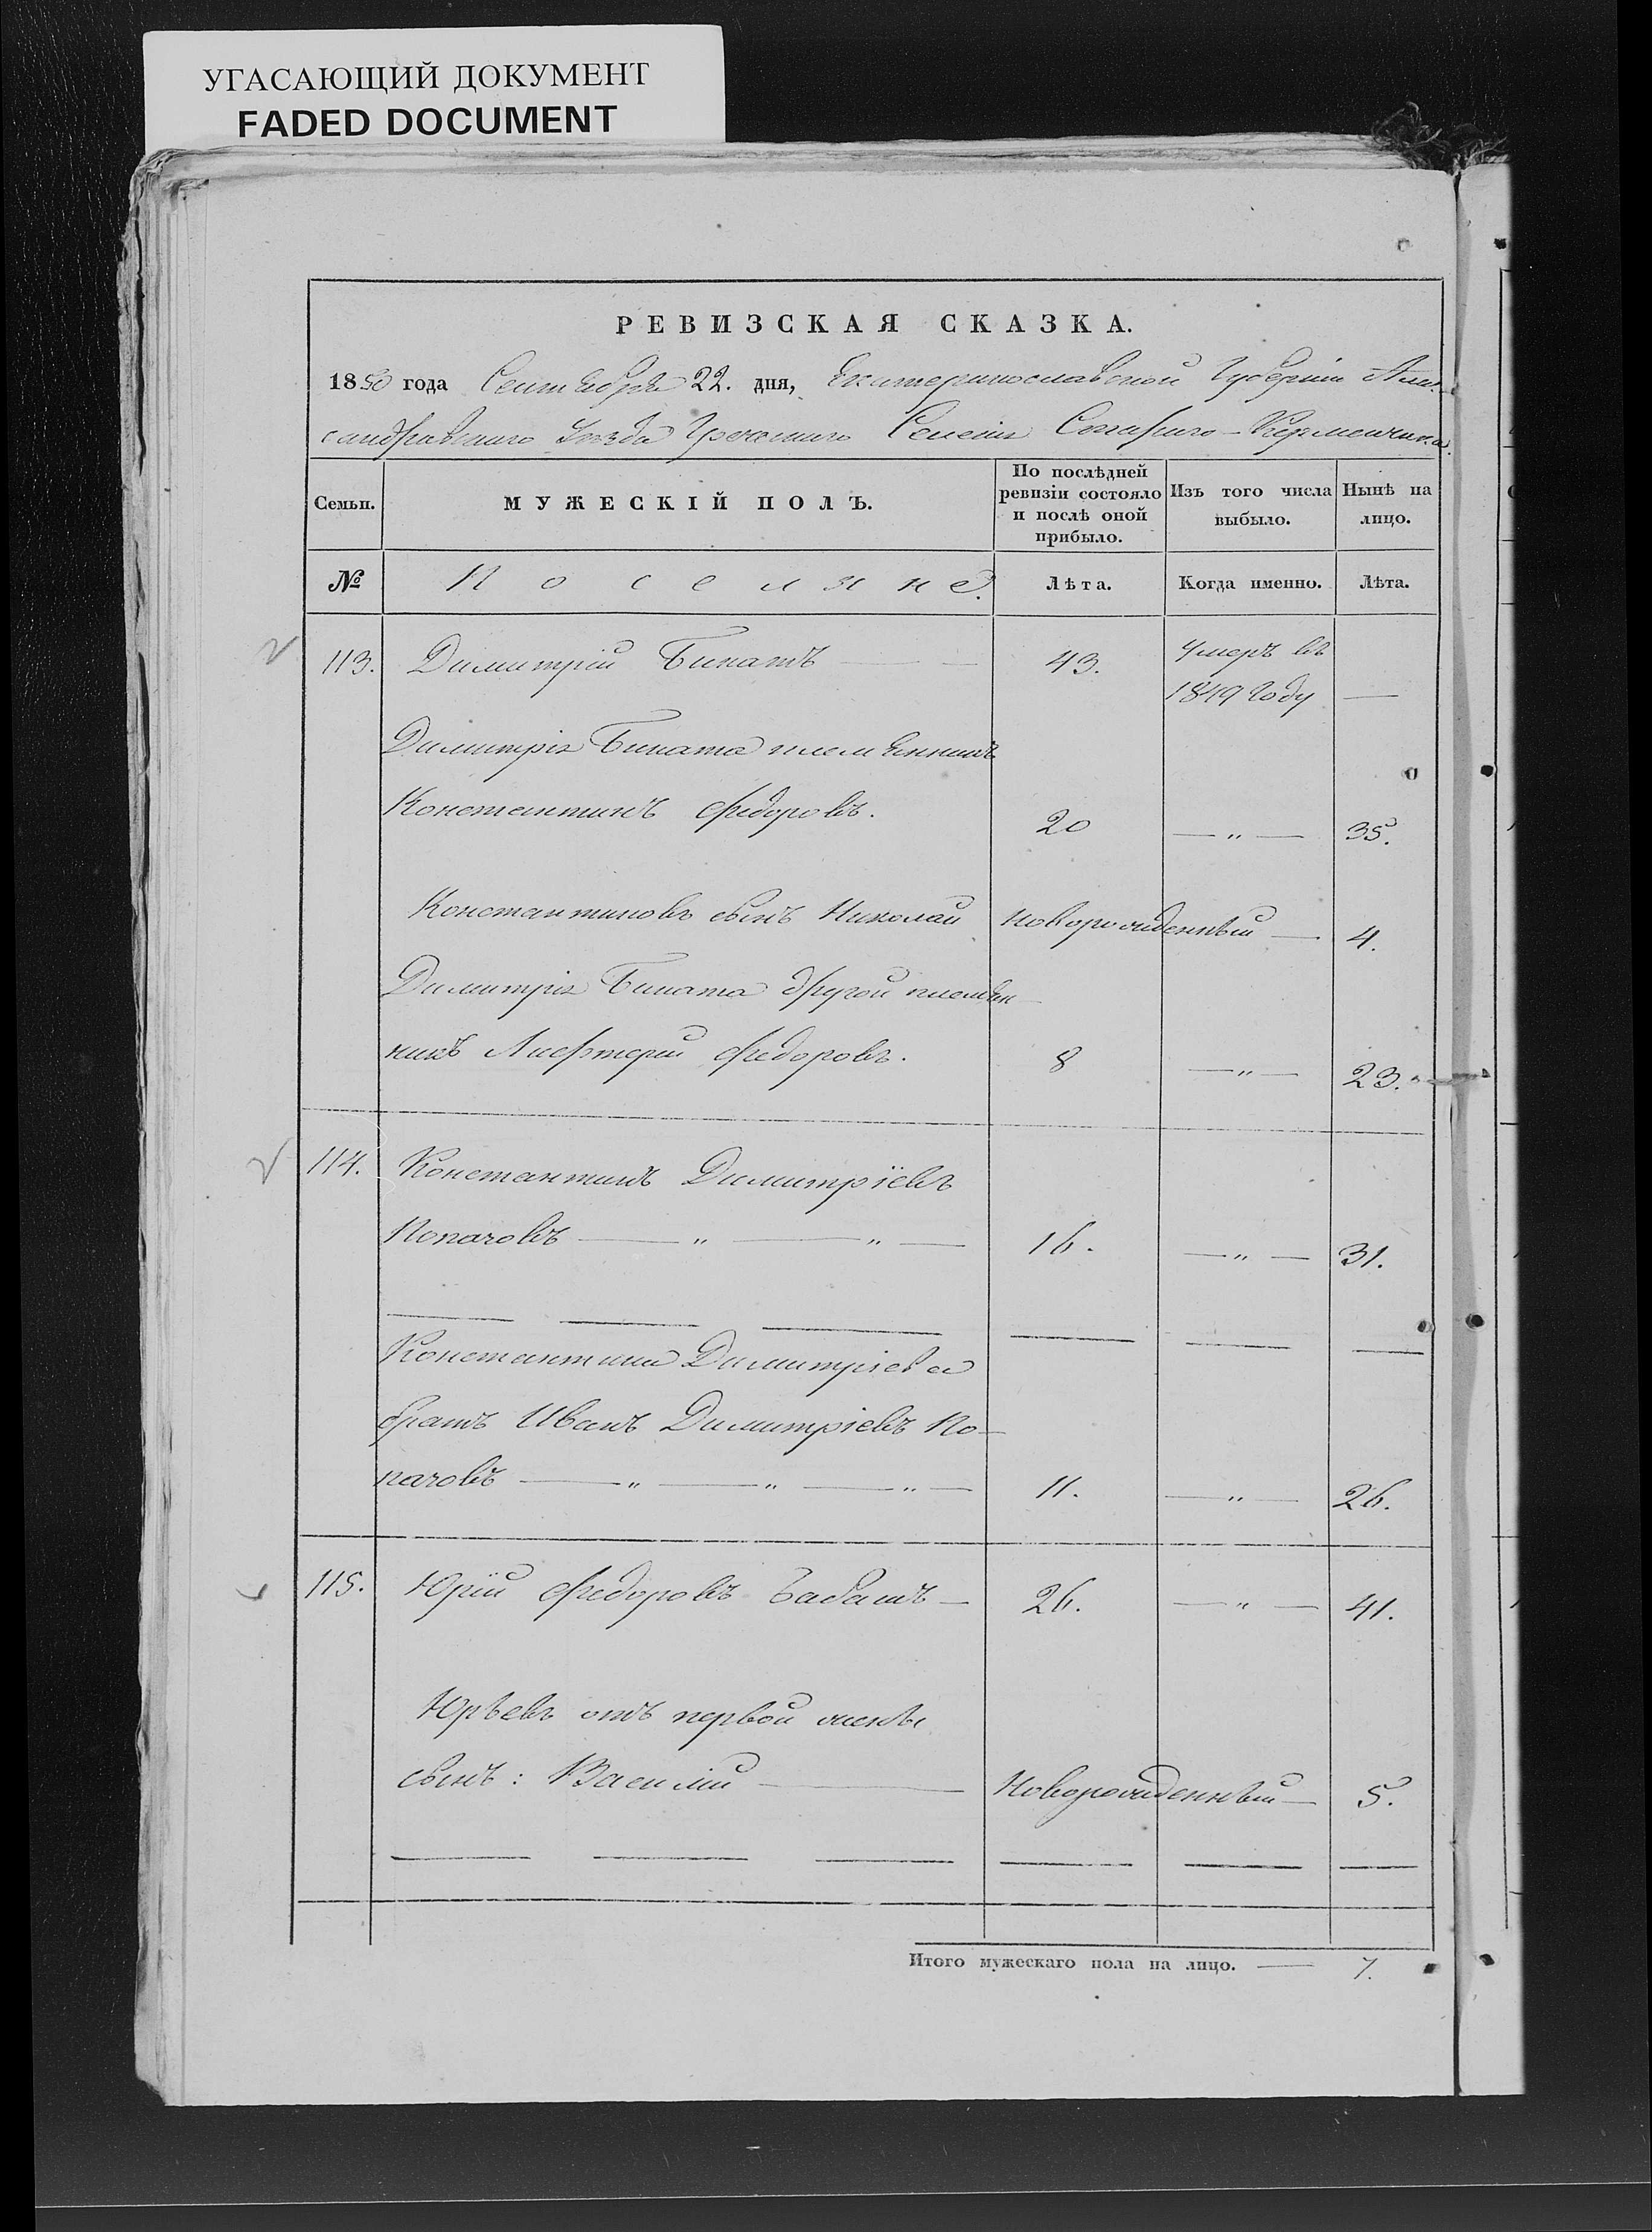 УГАСАЮЩИЙ ДОКУМЕНТ
FADED DOCUMENT
РЕВИЗСКАЯ СКАЗКА.
1850 года Сентября 22. дня, Екатеринославской Губерніи Алек-
сандровского Уѣзда Греческаго Селенія Стараго-Керменчика
Семьи. МУЖЕСКІЙ ПОЛЪ. По послѣдней ревизіи состояло и послѣ оной прибыло. Изъ того числа выбыло. Нынѣ на лицо.
№ Поселяне. Лѣта. Когда именно. Лѣта.
113. Димитрій Бинатъ — 43. Умеръ въ
1849 году —
Димитрія Бината племенникъ
Константинъ Федоровъ. 20 —„— 35.
Константиновъ сынъ Николай Новорожденный — 4.
Димитрія Бината другой племян-
никъ Лифтерій Федоровъ. 8 —„— 23.
114. Константинъ Димитріевъ
Попачовъ —„—„— 16. —„— 31.
Константина Димитріева
братъ Иванъ Димитріевъ По-
пачовъ —„—„—„— 11. —„— 26.
115. Юрій Федоровъ Бабашъ — 26. —„— 41.
Юрьевъ отъ первой жены
сынъ: Василій — Новорожденный — 5.
Итого мужескаго пола на лицо. — 7.